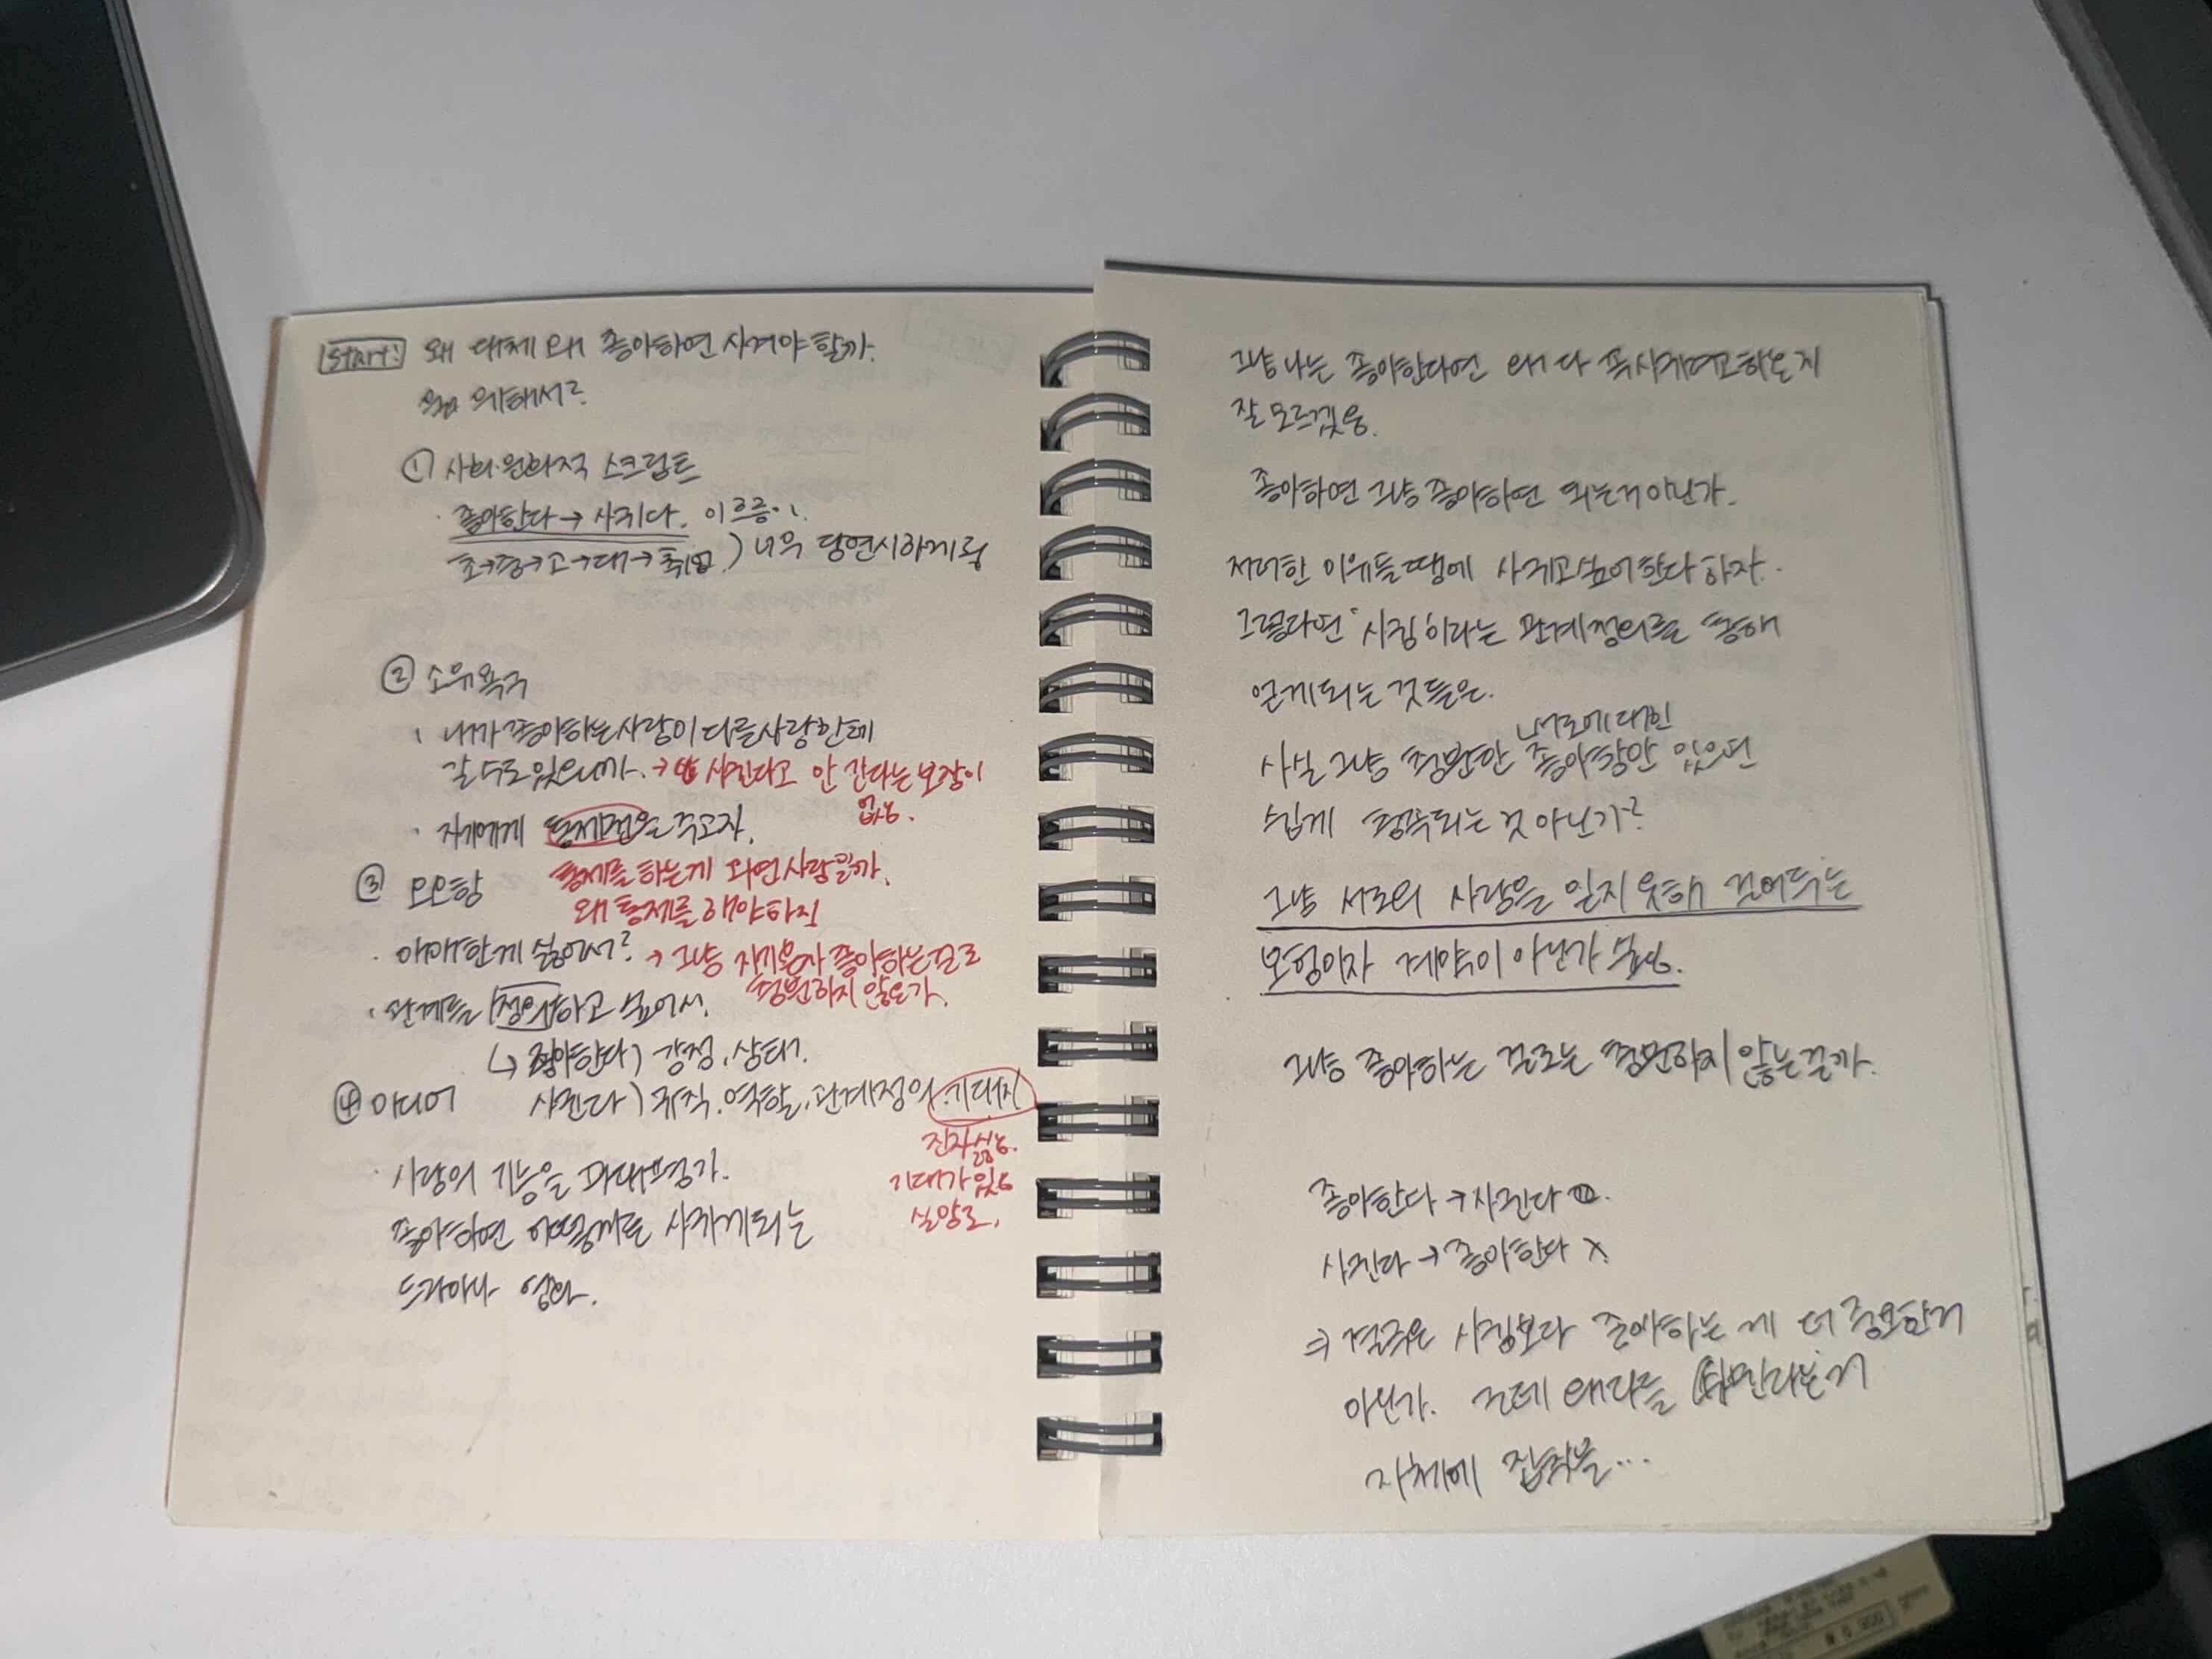 START! 왜 대체 왜 좋아하면 사겨야 할까.
뭘 위해서?
① 사회·문화적 스크립트
· 좋아한다 → 사귀다. 이 흐름이.
초→중→고→대→취업 ) 너무 당연시하게 됨
② 소유욕구
· 내가 좋아하는 사람이 다른사람한테
갈 수도 있으니까. → 사귄다고 안 간다는 보장이
없음.
· 자기에게 통제권을 주고자.
통제를 하는게 과연 사랑일까.
왜 통제를 해야하지
③ 모호함
· 애매한게 싫어서? → 그냥 자기혼자 좋아하는걸로
충분하지 않은가.
· 관계를 정의하고 싶어서.
↳ 좋아한다) 감정, 상태.
사귄다) 규칙. 역할, 관계정의. 기대치
진짜 싫음.
기대가 있음
실망도.
④ 미디어
· 사랑의 기능을 과대평가.
좋아하면 어떻게든 사귀게되는
드라마나 영화.
그냥 나는 좋아한다면 왜 다 꼭 사귀려고하는지
잘 모르겠음.
좋아하면 그냥 좋아하면 되는거 아닌가.
저러한 이유들 땜에 사귀고싶어 한다 하자.
그렇다면 '사귐'이라는 관계정의를 통해
얻게되는 것들은.
서로에 대한
사실 그냥 충분한 좋아함만 있으면
쉽게 충족되는 것 아닌가?
그냥 서로의 사랑을 믿지 못해 걸어두는
보험이자 계약이 아닌가 싶음.
그냥 좋아하는 걸로는 충분하지 않는걸까.
좋아한다 → 사귄다 O.
사귄다 → 좋아한다 X.
⇒ 결국은 사귐보다 좋아하는 게 더 중요한거
아닌가. 근데 왜 다들 만나는거
자체에 집착을...